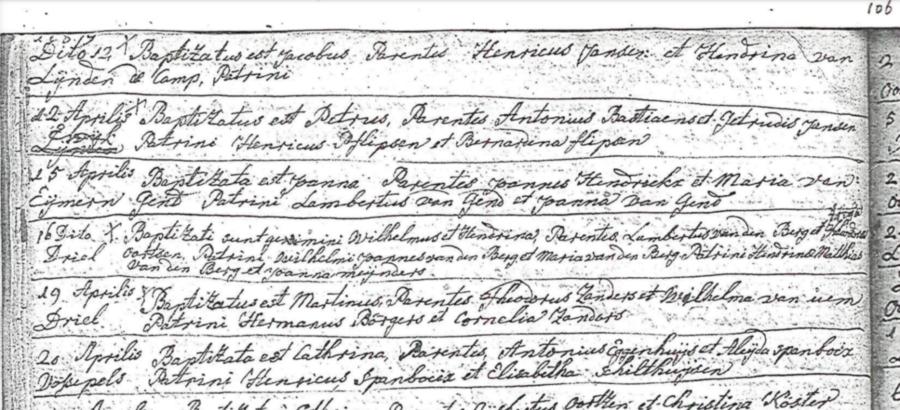 106
Dito 12 X Baptizatus est Jacobus Parentes Henricus Jansen et Hendrina van
Lynden de Camp, Patrini
12 Aprilis X Baptizatus est Petrus, Parentes Antonius Bastiaens et Getrudis Jansen
Patrini Henricus Fflipsen et Bernardina flipsen
15 Aprilis Baptizata est Joanna Parentes Joannes Hendrickx et Maria van
Eymern Gend Patrini Lambertus van Gend et Joanna van Gend
16 Dito X Baptizati sunt gemimini Wilhelmus et Hendrina, Parentes, Lambertus van den Berg et
Driel oosten, Patrini, Wilhelmi Joannes van den Berg et Maria van den Berg Patrini Hendrinae Matthias
van den Berg et Joanna meijnders
19 Aprilis X Baptizatus est Martinus, Parentes Theodorus Zanders et Wilhelma van uem
Driel Patrini Hermanus Borgers et Cornelia Zanders
20 Aprilis Baptizata est Cathrina, Parentes, Antonius Egenhuijs et Aleyda Spanboix
Patrini Henricus Spanboix et Elisabetha Hilthuysen
oosten et Christina Koster